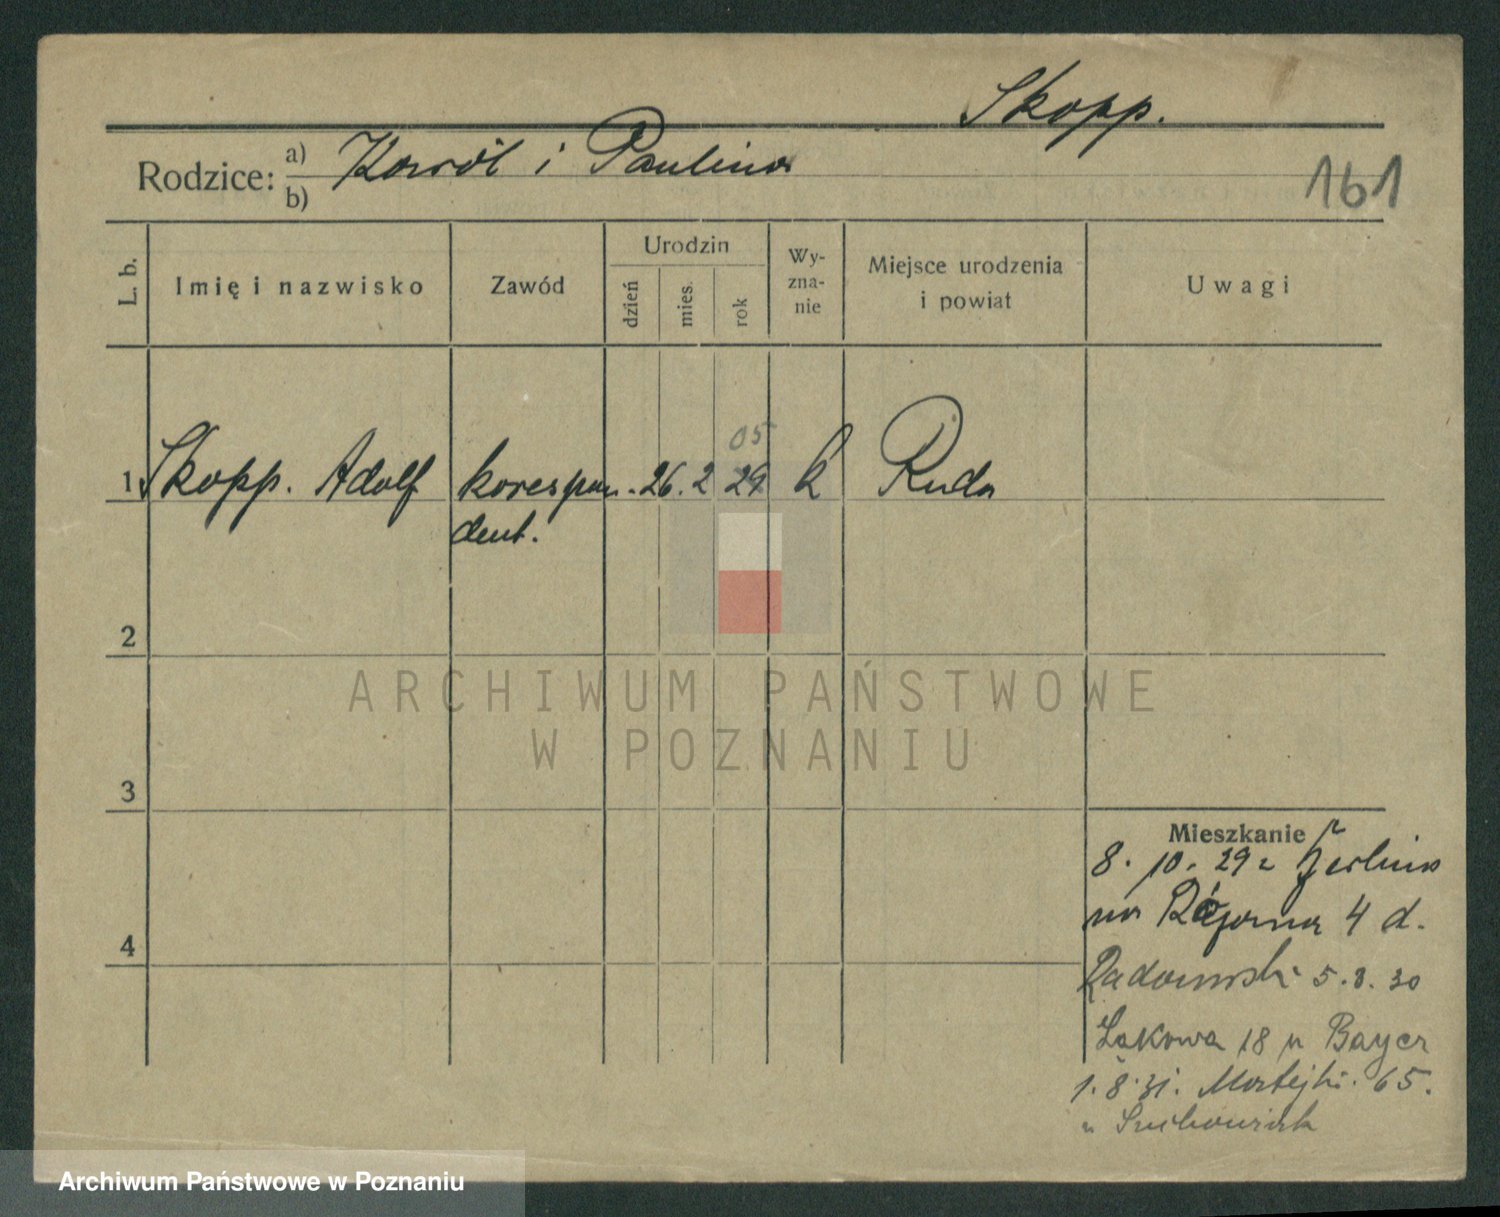 Skopp.
Rodzice: a) Karól i Paulina
b)
161
L. b.
Imię i nazwisko
Zawód
Urodzin
dzień
mies.
rok
Wy-
zna-
nie
Miejsce urodzenia
i powiat
Uwagi
05
1 Skopp. Adolf korespon- 26. 2 29 k Ruda
dent.
2
3
4
ARCHIWUM PAŃSTWOWE
W POZNANIU
Mieszkanie
8. 10. 29 z Berlina
na Różana 4 d.
Radomski 5.3.30
Łąkowa 18 u Bayer
1.8.31. Matejki. 65.
u
Archiwum Państwowe w Poznaniu